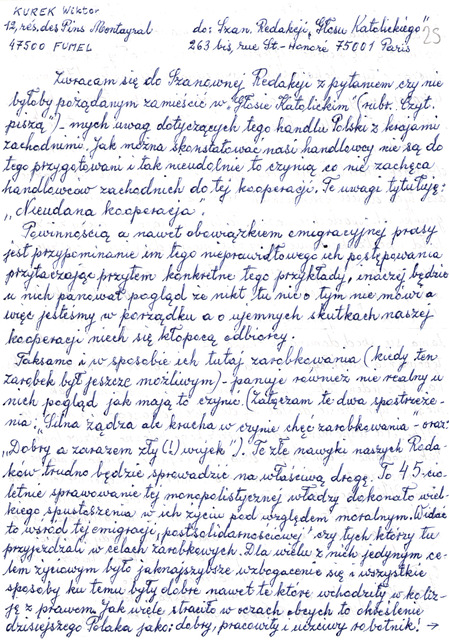 KUREK Wiktor
12, rés. des Pins Montayral
47500 FUMEL
do: Szan. Redakcji „Głosu Katolickiego"
263 bis, rue St-Honoré 75001 Paris
25
Zwracam się do Szanownej Redakcji z pytaniem czy nie
byłoby pożądanym zamieścić w „Głosie Katolickim" (rubr. Czyt.
piszą") - mych uwag dotyczących tego handlu Polski z krajami
zachodnimi. Jak można skonstatować nasi handlowcy nie są do
tego przygotowani i tak nieudolnie to czynią co nie zachęca
handlowców zachodnich do tej kooperacji. Te uwagi tytułuję:
„Nieudana kooperacja".
Powinnością a nawet obowiązkiem emigracyjnej prasy
jest przypominanie im tego nieprawidłowego ich postępowania
przytaczając przytem konkretne tego przykłady, inaczej będzie
u nich panował pogląd że nikt tu nic o tym nie mówi a
więc jesteśmy w porządku a o ujemnych skutkach naszej
kooperacji niech się kłopocą odbiorcy.
Taksamo i w sposobie ich tutaj zarobkowania (kiedy ten
zarobek był jeszcze możliwym) - panuje również nie realny u
nich pogląd jak mają to czynić. (Załączam te dwa spostrzeże-
nia: „Silna żądza ale krucha w czynie chęć zarobkowania" - oraz:
„Dobry a zarazem zły (!) wujek"). Te złe nawyki naszych Roda-
ków trudno będzie sprowadzić na właściwą drogę. To 45-cio
letnie sprawowanie tej monopolistycznej władzy dokonało wiel-
kiego spustoszenia w ich życiu pod względem moralnym. Widać
to wśród tej emigracji „postsolidarnościowej" czy tych którzy tu
przyjeżdżali w celach zarobkowych. Dla wielu z nich jedynym ce-
lem życiowym było jaknajszybsze wzbogacenie się i wszystkie
sposoby ku temu były dobre nawet te które wchodziły w koliz-
ję z prawem. Jak wiele straciło w oczach obcych to określenie
dzisiejszego Polaka jako: dobry, pracowity i uczciwy robotnik! →